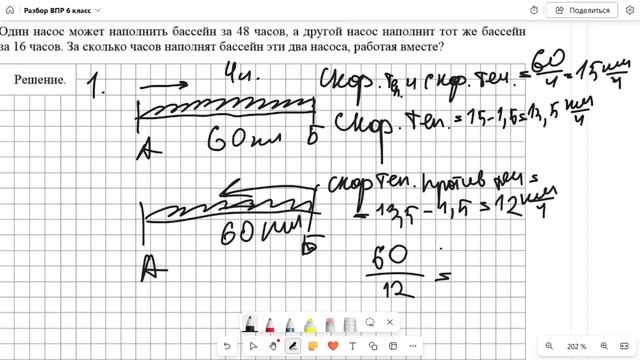 Разбор ВПР 6 класс
Поделиться
Один насос может наполнить бассейн за 48 часов, а другой насос наполнит тот же бассейн
за 16 часов. За сколько часов наполнят бассейн эти два насоса, работая вместе?
Решение.
1.
4ч.
А 60км Б
скор. теч и скор. теп. = 60/4 = 15 км/ч
скор. теп. = 15-1,5=13,5 км/ч
А 60км Б
скор теп. против теч =
= 13,5 - 1,5 = 12 км/ч
60/12 =
202 %